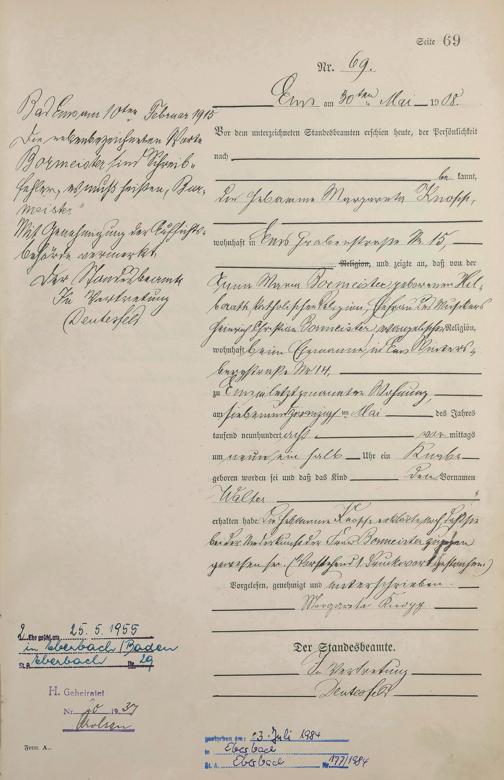 Seite 69
Nr. 69.
Ems am 30ten Mai 1908.
Vor dem unterzeichneten Standesbeamten erschien heute, der Persönlichkeit
nach
be kannt,
die Hebamme Margareta Knopp,
wohnhaft in Ems Grabenstraße Nr. 15,
Religion, und zeigte an, daß von der
Anna Maria Bormeister geborenen
katholischer Religion, Ehefrau des Musikers
Heinrich Christian Bormeister, evangelischer Religion,
wohnhaft beim Ehemanne in Ems Winters-
bergstraße Nr 14.
zu Ems in letztgenannter Wohnung,
am siebenundzwanzigsten Mai des Jahres
tausend neunhundert acht vor mittags
um neun ein halb Uhr ein Knabe
geboren worden sei und daß das Kind den Vornamen
Walter
erhalten habe. Die Hebamme Knopp erklärte noch daß sie
bei der Niederkunft der Frau Bormeister zugegen
gewesen sei. (Vorstehend 1 Druckwort gestrichen)
Vorgelesen, genehmigt und unterschrieben
Margareta Knopp
Der Standesbeamte.
In Vertretung
Deutesfeld
Bad Ems am 10ten Februar 1915
Die nebenbezeichneten Worte
Bormeister sind Schreib-
fehler, es muß heißen, "Bur-
meister"
Mit Genehmigung der Aufsichts-
behörde vermerkt.
Der Standesbeamte
In Vertretung
Deutesfeld
2. Ehe geschl. am 25.5.1955
in Eberbach/Baden
St.A. Eberbach Nr. 29
H. Geheiratet
Nr. 20 1937
Arolsen
gestorben am: 23. Juli 1984
in Eberbach
St. A. Eberbach Nr. 177/1984
Form. A..